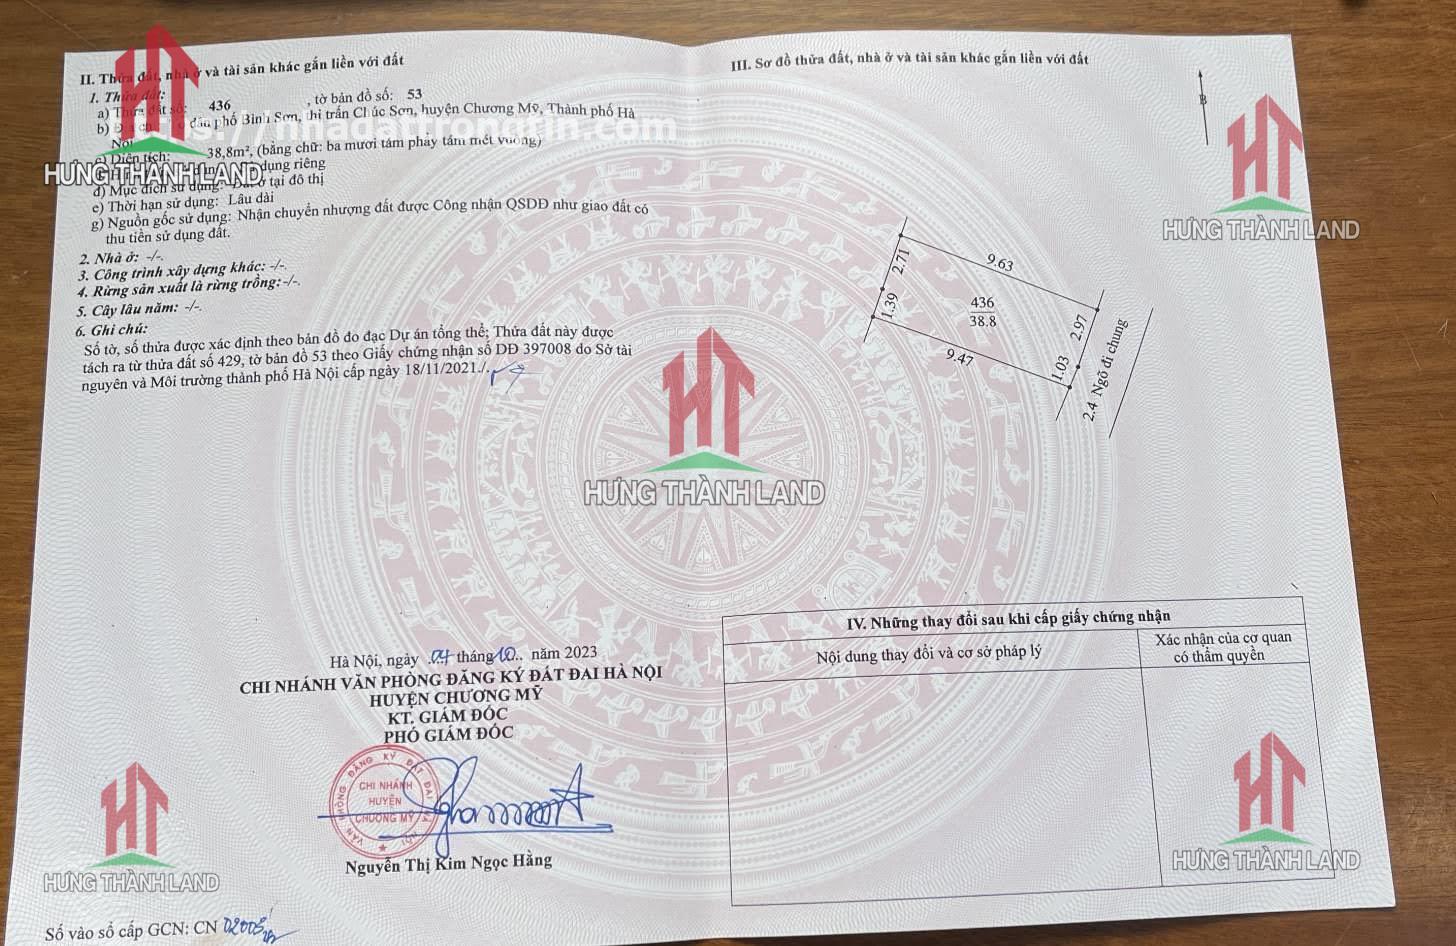 II. Thửa đất, nhà ở và tài sản khác gắn liền với đất
1. Thửa đất:
a) Thửa đất số: 436, tờ bản đồ số: 53
b) phố Bình Sơn, thị trấn Chúc Sơn, huyện Chương Mỹ, Thành phố Hà
Nội
c) Diện tích: 38,8m², (bằng chữ: ba mươi tám phẩy tám mét vuông)
dụng riêng
đ) Mục đích sử dụng: Đất ở tại đô thị
e) Thời hạn sử dụng: Lâu dài
g) Nguồn gốc sử dụng: Nhận chuyển nhượng đất được Công nhận QSDĐ như giao đất có
thu tiền sử dụng đất.
2. Nhà ở: -/-.
3. Công trình xây dựng khác: -/-.
4. Rừng sản xuất là rừng trồng: -/-.
5. Cây lâu năm: -/-.
6. Ghi chú:
Số tờ, số thửa được xác định theo bản đồ đo đạc Dự án tổng thể; Thửa đất này được
tách ra từ thửa đất số 429, tờ bản đồ 53 theo Giấy chứng nhận số DĐ 397008 do Sở tài
nguyên và Môi trường thành phố Hà Nội cấp ngày 18/11/2021./.
https://nhadattrongtin.com
HƯNG THÀNH LAND
Hà Nội, ngày 04 tháng 10 năm 2023
CHI NHÁNH VĂN PHÒNG ĐĂNG KÝ ĐẤT ĐAI HÀ NỘI
HUYỆN CHƯƠNG MỸ
KT. GIÁM ĐỐC
PHÓ GIÁM ĐỐC
VĂN PHÒNG ĐĂNG KÝ ĐẤT ĐAI HÀ NỘI
CHI NHÁNH
HUYỆN
CHƯƠNG MỸ
Nguyễn Thị Kim Ngọc Hằng
HƯNG THÀNH LAND
Số vào sổ cấp GCN: CN
III. Sơ đồ thửa đất, nhà ở và tài sản khác gắn liền với đất
B
HƯNG THÀNH LAND
2.71
9.63
1.39
436
38.8
2.97
9.47
1.03
2.4 Ngõ đi chung
HƯNG THÀNH LAND
IV. Những thay đổi sau khi cấp giấy chứng nhận
Nội dung thay đổi và cơ sở pháp lý
Xác nhận của cơ quan
có thẩm quyền
HƯNG THÀNH LAND